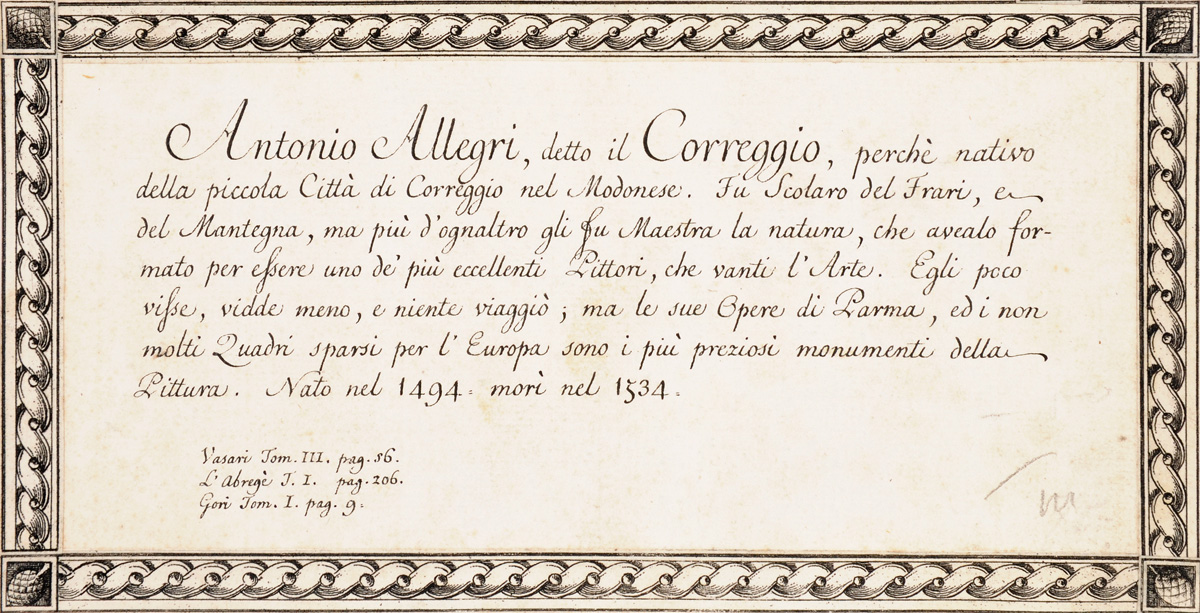 Antonio Allegri, detto il Correggio, perchè nativo
della piccola Città di Correggio nel Modonese. Fu Scolaro del Frari, e
del Mantegna, ma più d'ognaltro gli fu Maestra la natura, che avealo for-
mato per essere uno de' più eccellenti Pittori, che vanti l'Arte. Egli poco
visse, vidde meno, e niente viaggiò; ma le sue Opere di Parma, ed i non
molti Quadri sparsi per l'Europa sono i più preziosi monumenti della
Pittura. Nato nel 1494 = morì nel 1534 =
Vasari Tom. III. pag. 56.
L'Abregè T. I. pag. 206.
Gori Tom. I. pag. 9 =